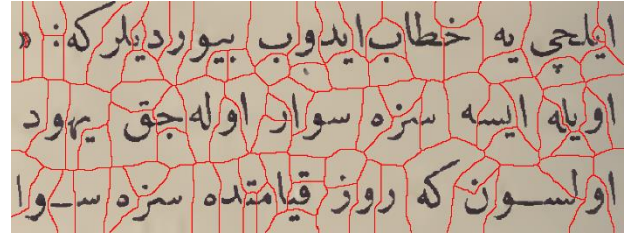 ایلچی یه خطاب ایدوب بیوردیلر که: «
اویله ایسه سزه سوار اوله جق یهود
اولســون که روز قیامتده سزه ســوا